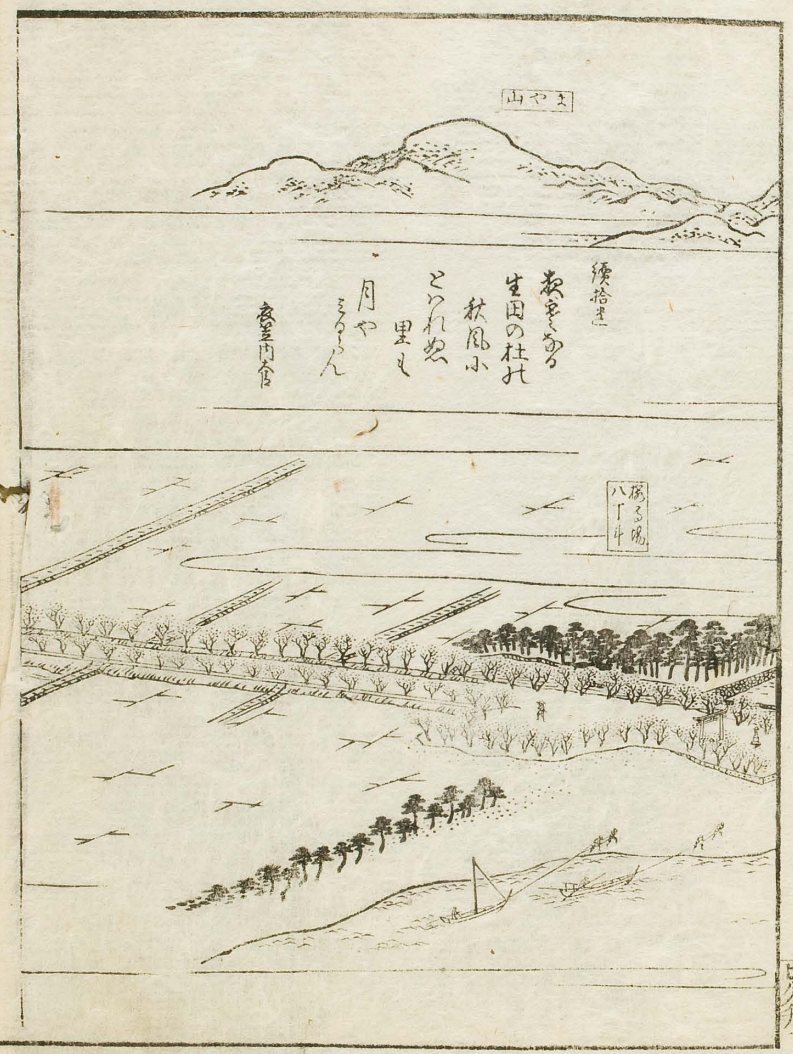 まや山
續拾遺
夜寒なる
生田の杜の
秋風に
とはれぬ
里も
月や
みるらん
衣笠内大臣
桜馬場
八丁斗